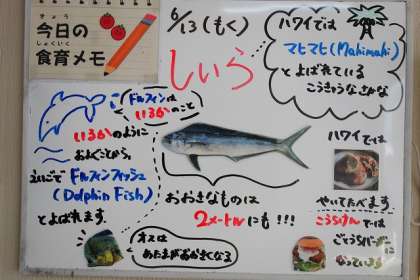 きょう
今日の
しょくいく
食育メモ
6/13(もく)
しいら
ハワイでは
マヒマヒ(Mahimahi)
とよばれている
こうきゅうなさかな
ドルフィンは
いるかのこと
いるかのように
およぐことから、
えいごでドルフィンフィッシュ
(Dolphin Fish)
とよばれます。
おおきなものは
2メートルにも!!!
オスは
あたまがおおきくなる
ハワイでは
やいてたべます
こうちけんでは
ごとうちバーガーに
なっている